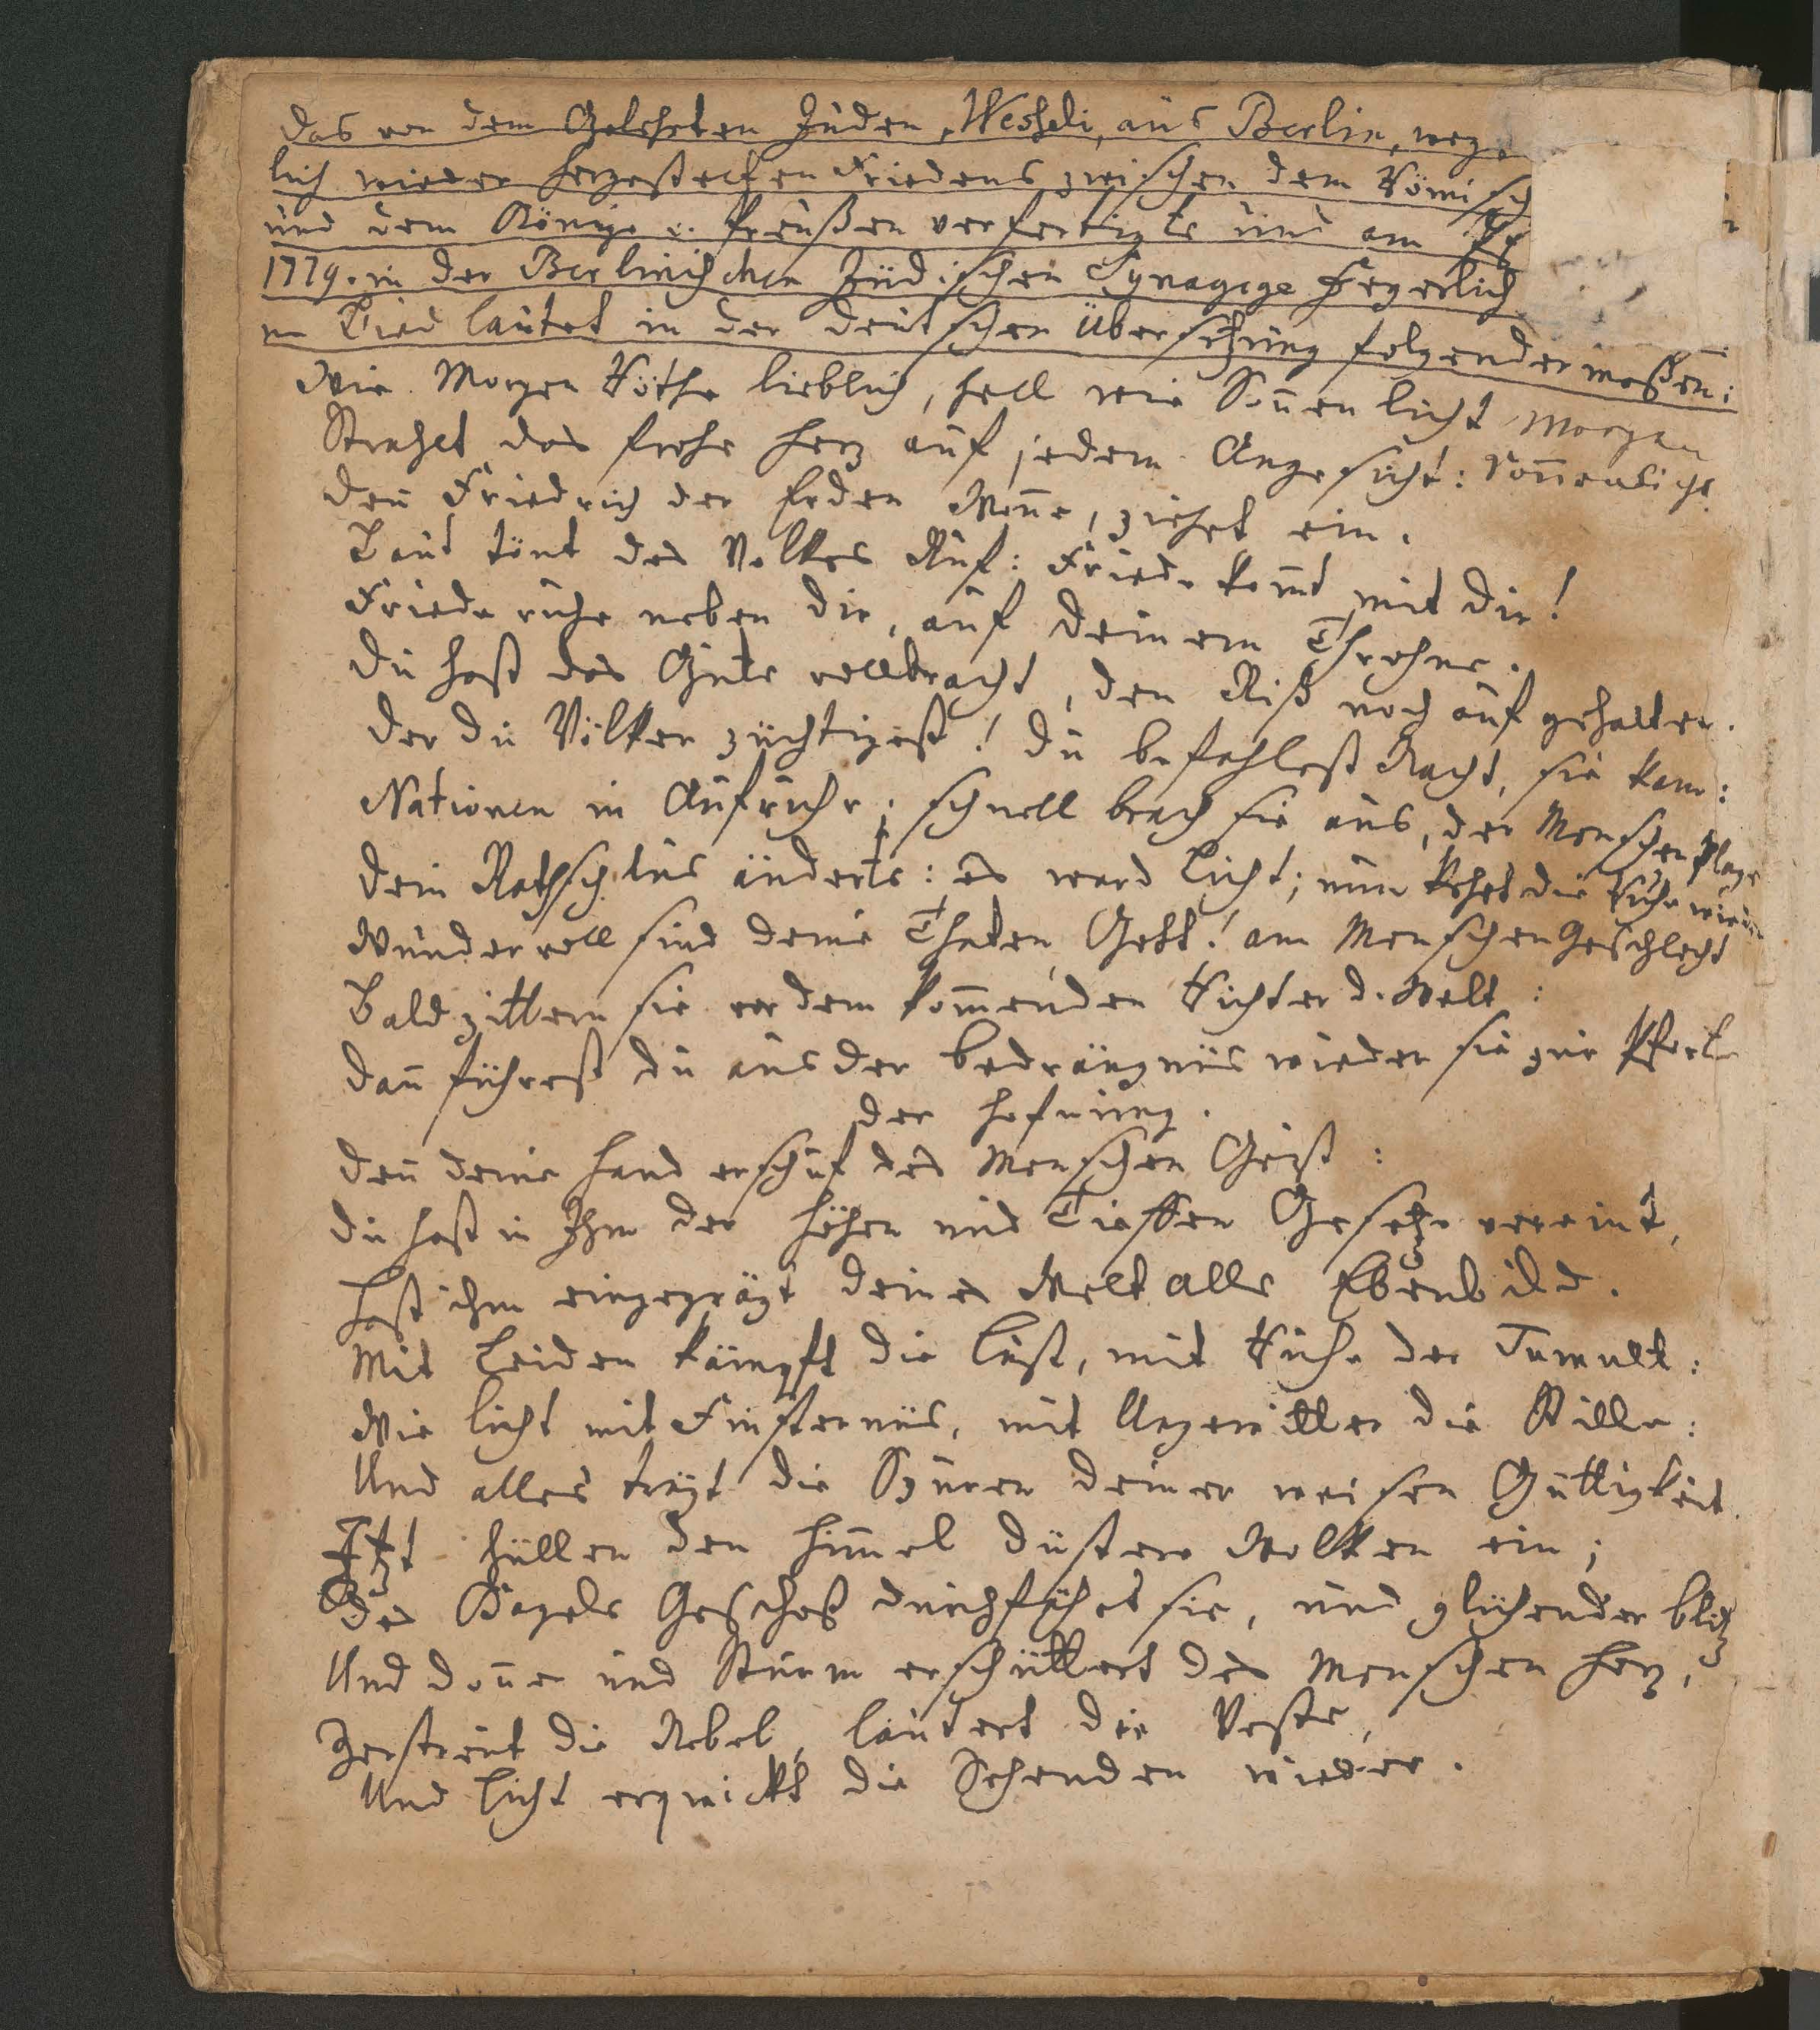 Das von dem Gelehrten Juden, Wesseli, aus Berlin, weg
lich wieder hergestelten Friedens zwischen dem Römisch
und dem Könige v. Preußen verfertigte und am
1779. in der Berlinischen Jüdischen Synagoge feyerlich
ne Lied lautet in der deutschen Übersetzung folgender maßen:
Wie Morgen Röthe lieblich, hell wie Soñen licht Morgen
Strahlet das frohe Herz auf jedem Angesicht: Soñenlicht
Deñ Friedrich der Erden Woñe, ziehet ein.
Laut tönt des Volkes Ruf: Friede kom̃t mit dir!
Friede ruhe neben dir, auf deinem Throhne.
Du hast das Gute vollbracht, den Riß noch auf gehalten.
Der du Völker züchtigest! Du befahlest Nacht, sie kam:
Nationen in Aufruhr; schnell brach sie aus, der Menschen Plage
Dein Rathschlus änderts: es ward Licht; nun kehrt die Ruhe wieder
Wundervoll sind deine Thaten, Gott! am Menschen Geschlecht
Bald zittern sie vor dem kom̃enden Richter d. Welt:
Dañ führest du aus der Bedrängnüs wieder sie zur Pforte
der Hofnung.
Deñ deine Hand erschuf des Menschen Geist:
Du hast in Ihm der Höhen und Tieffen Gesetze vereint,
Hast ihm eingeprägt deines Welt alls Ebenbild.
Mit Leiden kämpft die Lust, mit Ruhe der Tumult:
Wie Licht mit Finsternüs, mit Ungewitter die Stille:
Und alles trägt die Spuren deiner weisen Güttigkeit.
Itzt hüllen den Him̃el düstere Wolken ein;
Des Hagels Geschoß durchfährt sie, und glühender Blitz
Und Doñer und Sturm erschüttert des Menschen Herz,
Zerstreut die Nebel, läutert die Veste,
Und Licht erquickt die Sehenden wieder.